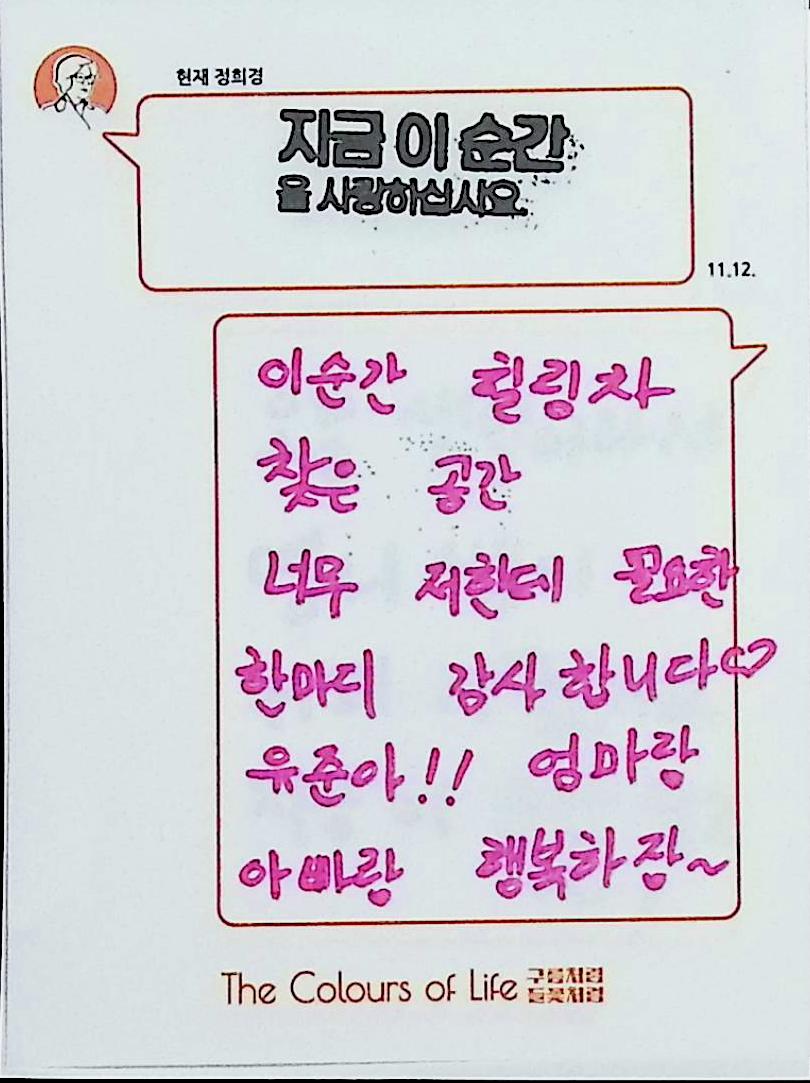 현재 정희경
지금 이 순간
을 사랑하십시오.
11.12.
이순간 힐링차
찾은 공간
너무 저한테 필요한
한마디 감사합니다♡
유준아!! 엄마랑
아빠랑 행복하장~
The Colours of Life 구름처럼
들꽃처럼